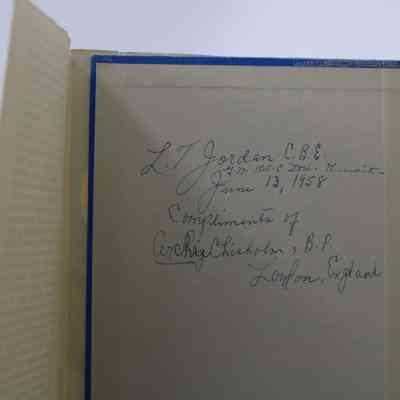 L. T. Jordan C.B.E.
June 13, 1958
Compliments of
Archie Chisholm, B.P.
London, England